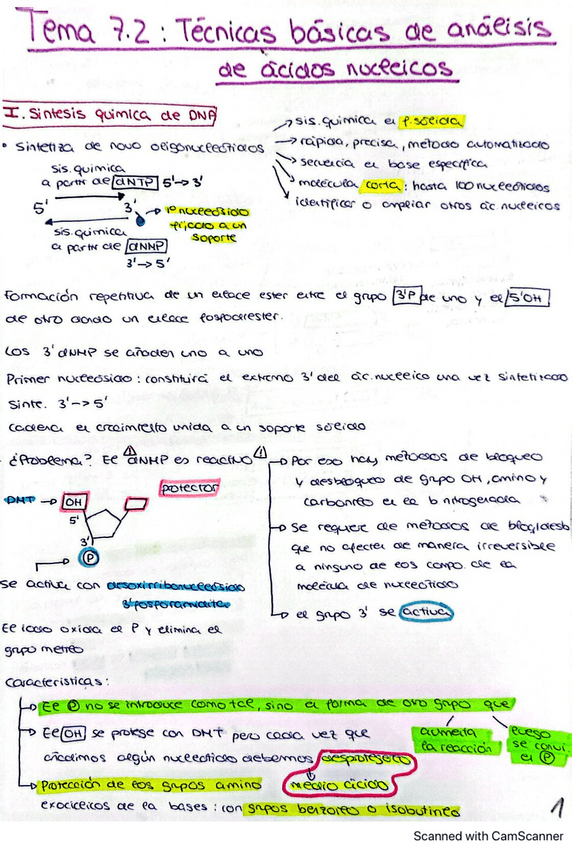 Tema 7.2: Técnicas básicas de análisis
de ácidos nucleicos
I. Síntesis química de DNA
• Sintetiza de novo oligonucleótidos
→ sis. química en f. sólida
→ rápida, precisa, método automatizado
→ secuencia en base específica
→ molécula corta: hasta 100 nucleótidos
→ identificar o ampliar otros ác nucleicos
sis. química
a partir de dNTP 5'→3'
5' 3'
→ 1er nucleósido
fijado a un
soporte
sis. química
a partir de dNNP
3'→5'
Formación repetitiva de un enlace ester entre el grupo 3'P de uno y el 5'OH
de otro dando un enlace fosfodiester.
Los 3' dNMP se añaden uno a uno
Primer nucleósido: constituirá el extremo 3' del ác. nucleico una vez sintetizado
Sinte. 3'→5'
Cadena en crecimiento unida a un soporte sólido
¿Problema? El dNMP es reactivo
→ Por eso hay métodos de bloqueo
y desbloqueo de grupo OH, amino y
carbonilo en la b nitrogenada
→ se requiere de métodos de bloq/desb
que no afecten de manera irreversible
a ninguno de los compo. de la
molécula de nucleótido
→ el grupo 3' se activa
protector
DMT → OH
5'
3'
P
se activa con desoxirribonucleósido
3'fosforamidita
El iodo oxida el P y elimina el
grupo metilo
Características:
→ El P no se introduce como tal, sino en forma de otro grupo que
aumenta
la reacción
luego
se convi.
en P
→ El OH se protege con DMT pero cada vez que
añadimos algún nucleótido debemos desprotegerlo
medio ácido
→ Protección de los grupos amino
exocíclicos de la bases: con grupos benzoilo o isobutirilo
1
Scanned with CamScanner